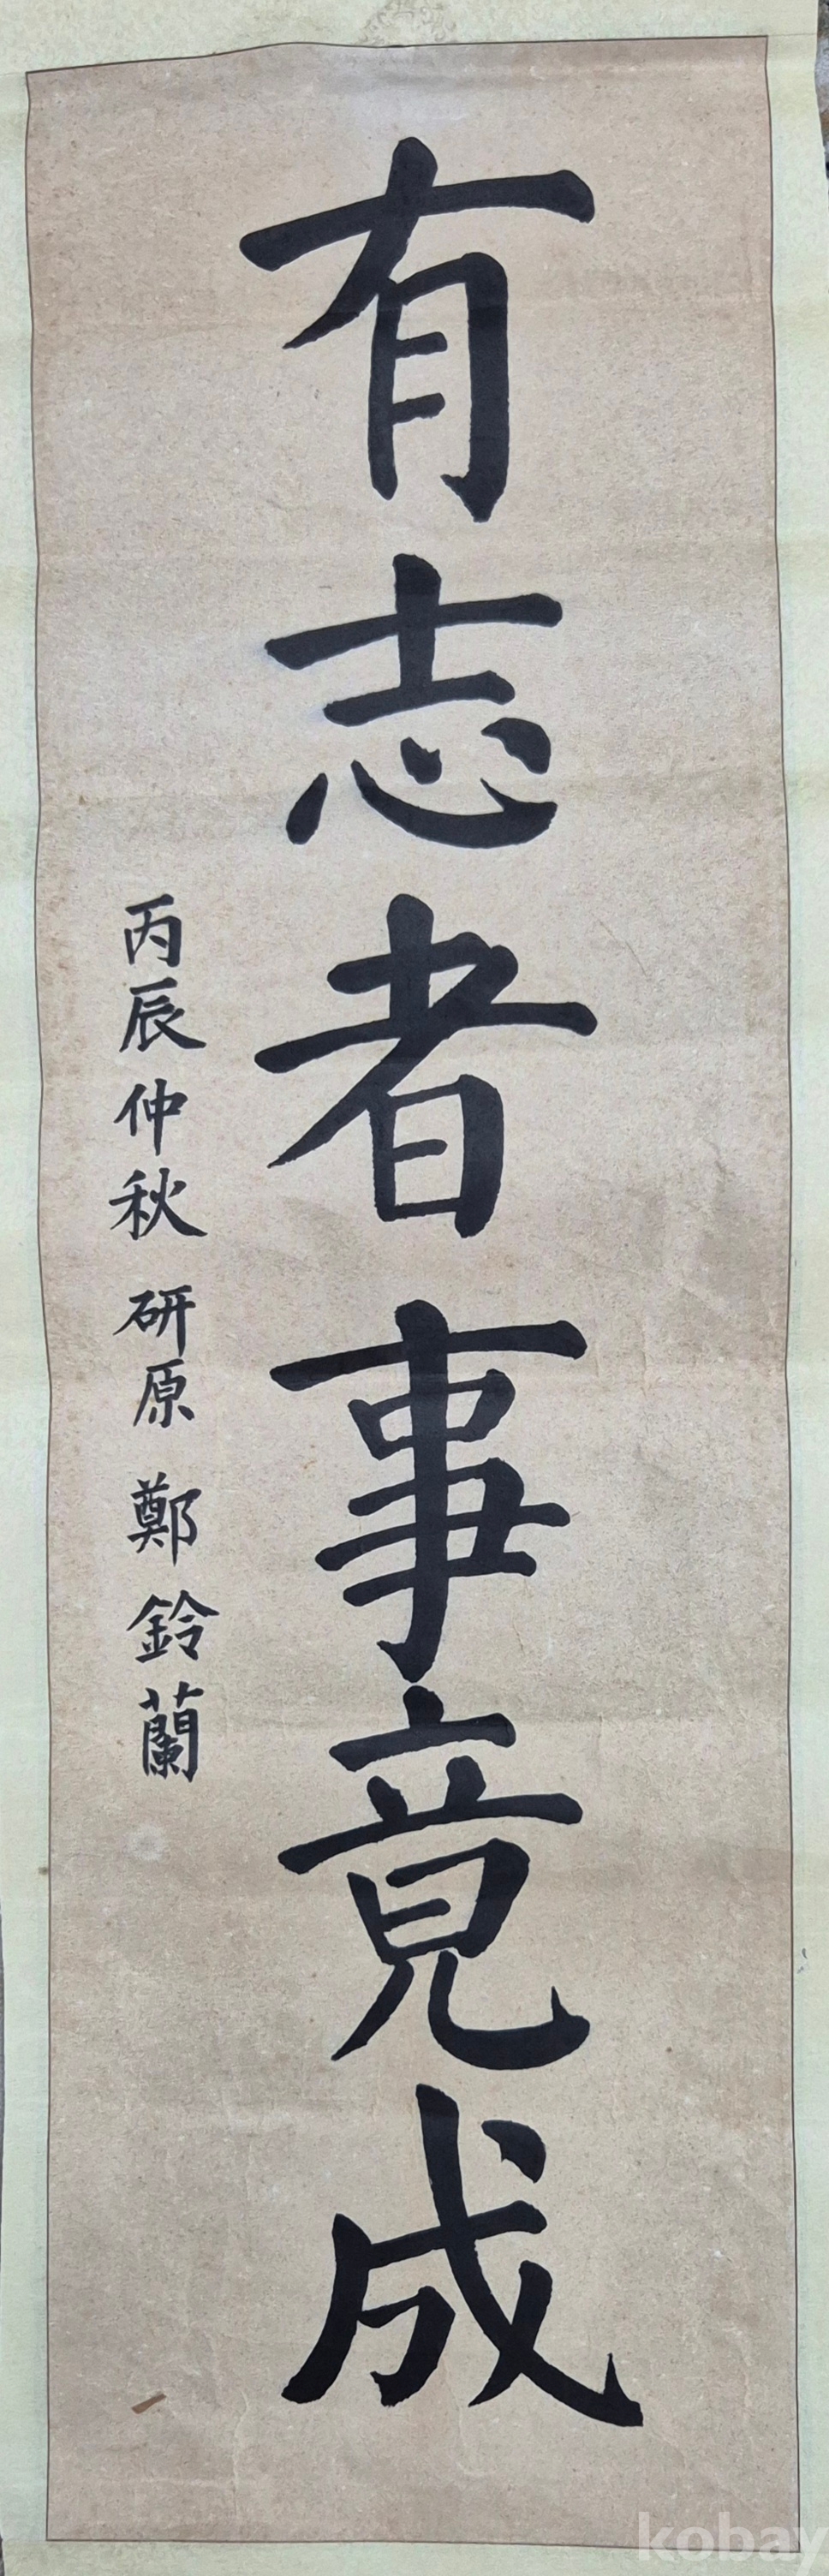 有志者事竟成
丙辰仲秋 研原 鄭鈴蘭
kobay